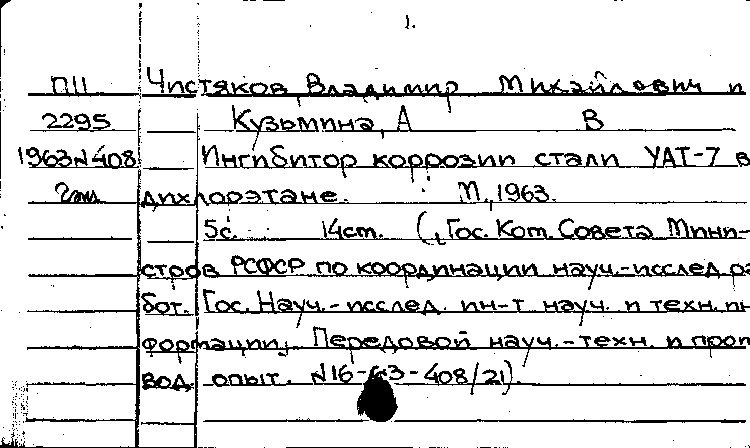 1.
П11 Чистяков, Владимир Михайлович и
2295 Кузьмина, А В
1963 N 408 Ингибитор коррозии стали УАТ-7 в
дихлорэтане. М., 1963.
5с. 14см. (Гос. Ком. Совета Мини-
стров РСФСР по координации науч.-исслед. ра
бот. Гос. Науч.-исслед. ин-т науч. и техн. ин
формации. Передовой науч.-техн. и прои
вод. опыт. N16-63-408/21).